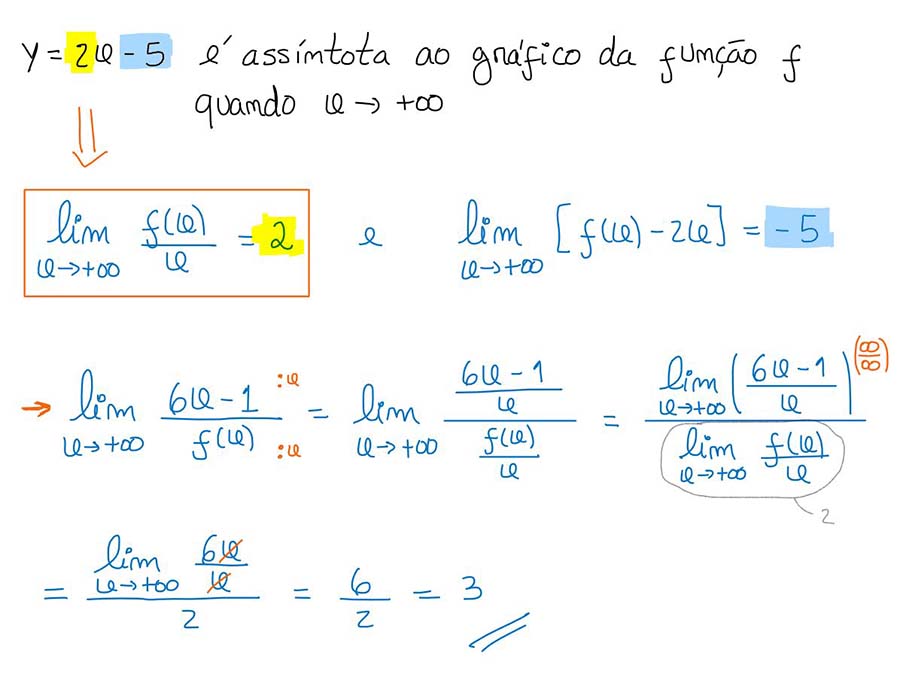 y = 2x - 5 é assíntota ao gráfico da função f
quando x → +∞
lim x→+∞ f(x)/x = 2 e lim x→+∞ [f(x) - 2x] = -5
→ lim x→+∞ (6x - 1)/f(x) :x :x = lim x→+∞ ((6x - 1)/x)/(f(x)/x) = (lim x→+∞ ((6x - 1)/x)^(∞/∞))/(lim x→+∞ f(x)/x) 2
= (lim x→+∞ 6x/x)/2 = 6/2 = 3